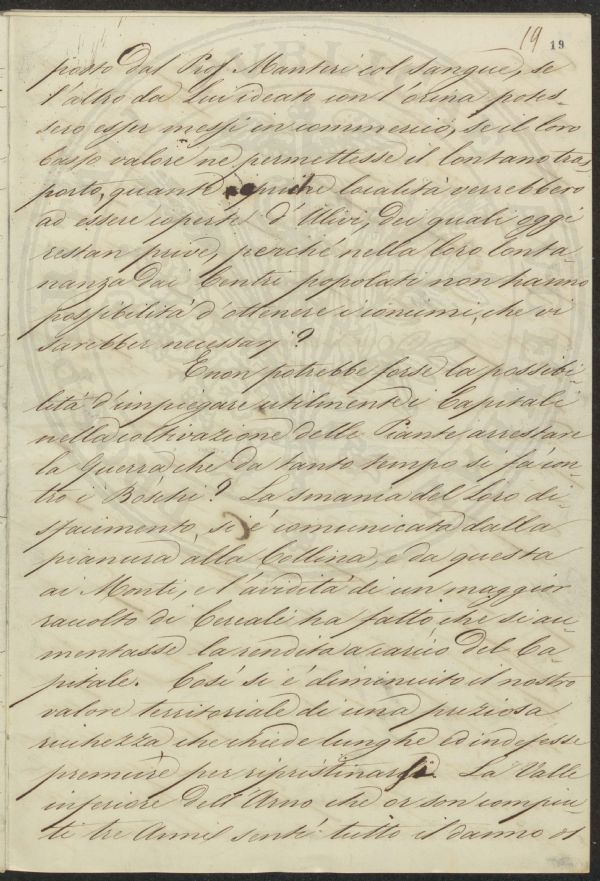 19 19
posto dal Prof. Manteri col sangue, se
l'altro da Lui ideato con l'orina potes-
sero esser messi in commercio, se il loro
basso valore ne permettesse il lontano tras-
porto, quante località verrebbero
ad essere coperte d'Ulivi, dei quali oggi
restan prive, perché nella loro lonta-
nanza dai Centri popolati non hanno
possibilità d'ottenere i concimi, che vi
sarebber necessarj?
E non potrebbe forse la possibi-
lità d'impiegare utilmente i Capitali
nella coltivazione delle Piante arrestare
la guerra che da tanto tempo si fà con-
tro i Boschi? La smania del loro di-
sfacimento, si è comunicata dalla
pianura alla Collina, e da questa
ai Monti, e l'avidità di un maggior
raccolto di Cereali ha fatto, che si au-
mentasse la rendita a carico del Ca-
pitale. Così si è diminuito il nostro
valore territoriale di una preziosa
ricchezza che chiede lunghe ed indefesse
premure per ripristinarsi. La Valle
inferiore dell'Arno che or son compiu-
ti tre Anni sentì tutto il danno di